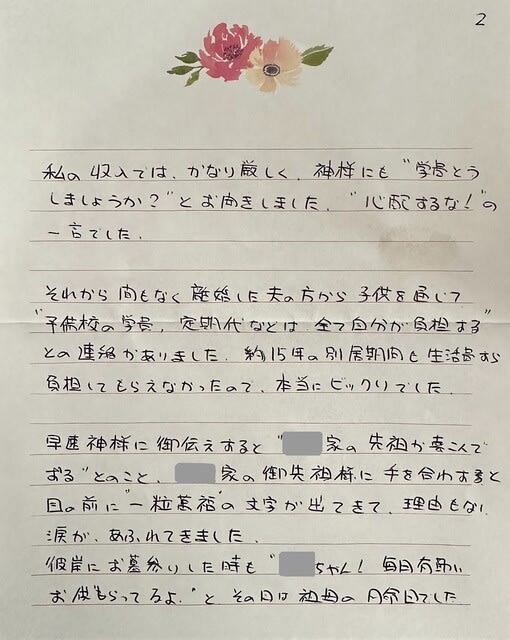 2
私の収入では、かなり厳しく、神様にも "学費どう
しましょうか？" とお聞きしました。 "心配するな！" の
一言でした。
それから間もなく離婚した夫の方から子供を通じて
"予備校の学費、定期代などは全て自分が負担する"
との連絡がありました。約15年の別居期間も生活費すら
負担してもらえなかったので、本当にビックリでした。
早速神様に御伝えすると "家の先祖が喜こんで
おる" とのこと、家の御先祖様に手を合わすると
目の前に "一粒萬福" の文字が出てきて、理由もない
涙が、あふれてきました。
彼岸にお墓参りした時も "ちゃん！毎日有難い
お供もらってるよ。" と その日は祖母の月命日でした